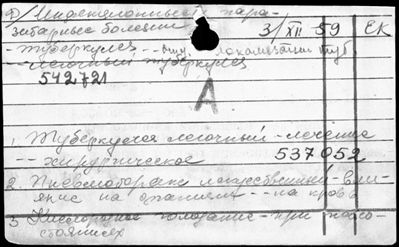 Инфекционные и пара-
зитарные болезни 3/XII 59 ЕК
- туберкулез -- локализации туб.
- легочный туберкулез
542721
А
1. Туберкулез легочный - лечение
-- хирургическое 537052
2. Пневмоторакс искусственный - вли-
яние на организм -- на кровь
3. Кислородное голодание - при
стояниях